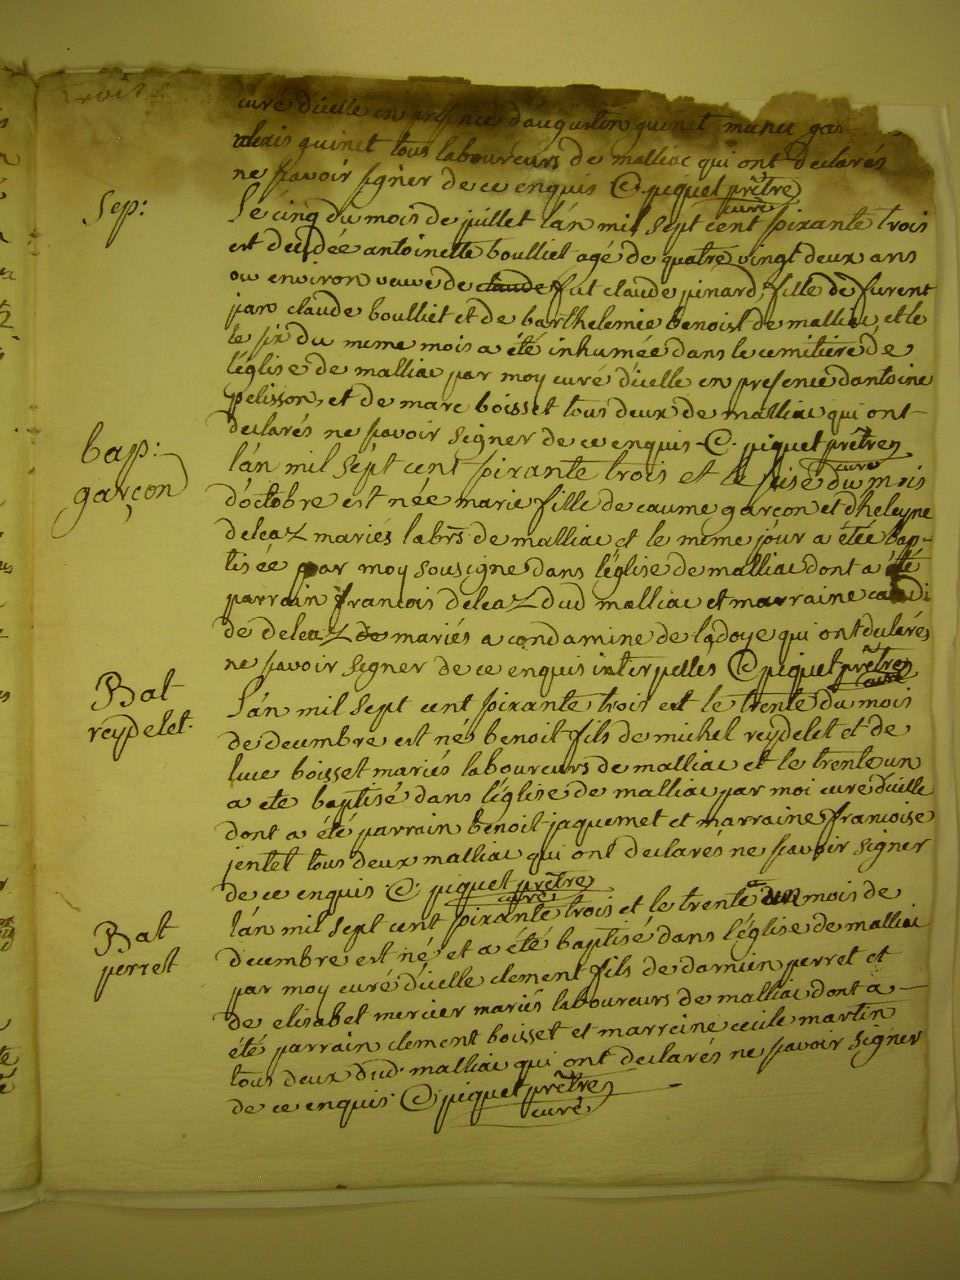 curé d'icelle en presence d'augustin quinet
alexis quinet tous laboureurs de malliac qui ont declarés
ne scavoir signer de ce enquis C. piquet prêtre
curé
Sep:
Le cinq du mois de juillet l'an mil sept cent soixante trois
est decedée antoinette boulliet agé de quatre vingt deux ans
ou environ veuve de claude fut claude pinard, fille de furent
claude boulliet et de barthelemie benoist de malliac, et le
le six du meme mois a été inhumée dans le cemitiere de
l'église de malliac par moy curé d'icelle en presence dantoine
pelisson, et de marc boisset tous deux de malliac qui ont
declarés ne scavoir signer de ce enquis C. piquet prêtre
curé
bap:
garçon
l'an mil sept cent soixante trois et le seise du mois
d'octobre est née marie fille de caume garçon et dheleyne
deleaz mariés labrs de malliac et le meme jour a étée bap-
tisée par moy sousigne dans l'église de malliac dont a été
parrain francois deleaz dud malliac et marraine
de deleaz de mariés a condamine de ladoye qui ont declarés
ne scavoir signer de ce enquis interpellés C piquet prêtre
curé
Bat
reydelet.
L'an mil sept cent soixante trois est le trente du mois
de decembre est né benoit fils de michel reydelet et de
luce boisset mariés laboureurs de malliac et le trente un
a ete baptisé dans l'église de malliac par moi curé d'icelle
dont a été parrain benoit jaquemet et marraine francoise
jentet tous deux malliac qui ont declarés ne scavoir signer
de ce enquis C. piquet prêtre
curé
Bat
perret
l'an mil sept cent soixante trois et le trente un mois de
decembre est né et a été baptisé dans l'église de malliac
par moy curé d'icelle clement fils de damien perret et
de elisabet mercier mariés laboureurs de malliac dont a
été parrain clement boisset et marreine cecile martin
tous deux dud. malliac qui ont declarés ne scavoir signer
de ce enquis C. piquet prêtre
curé